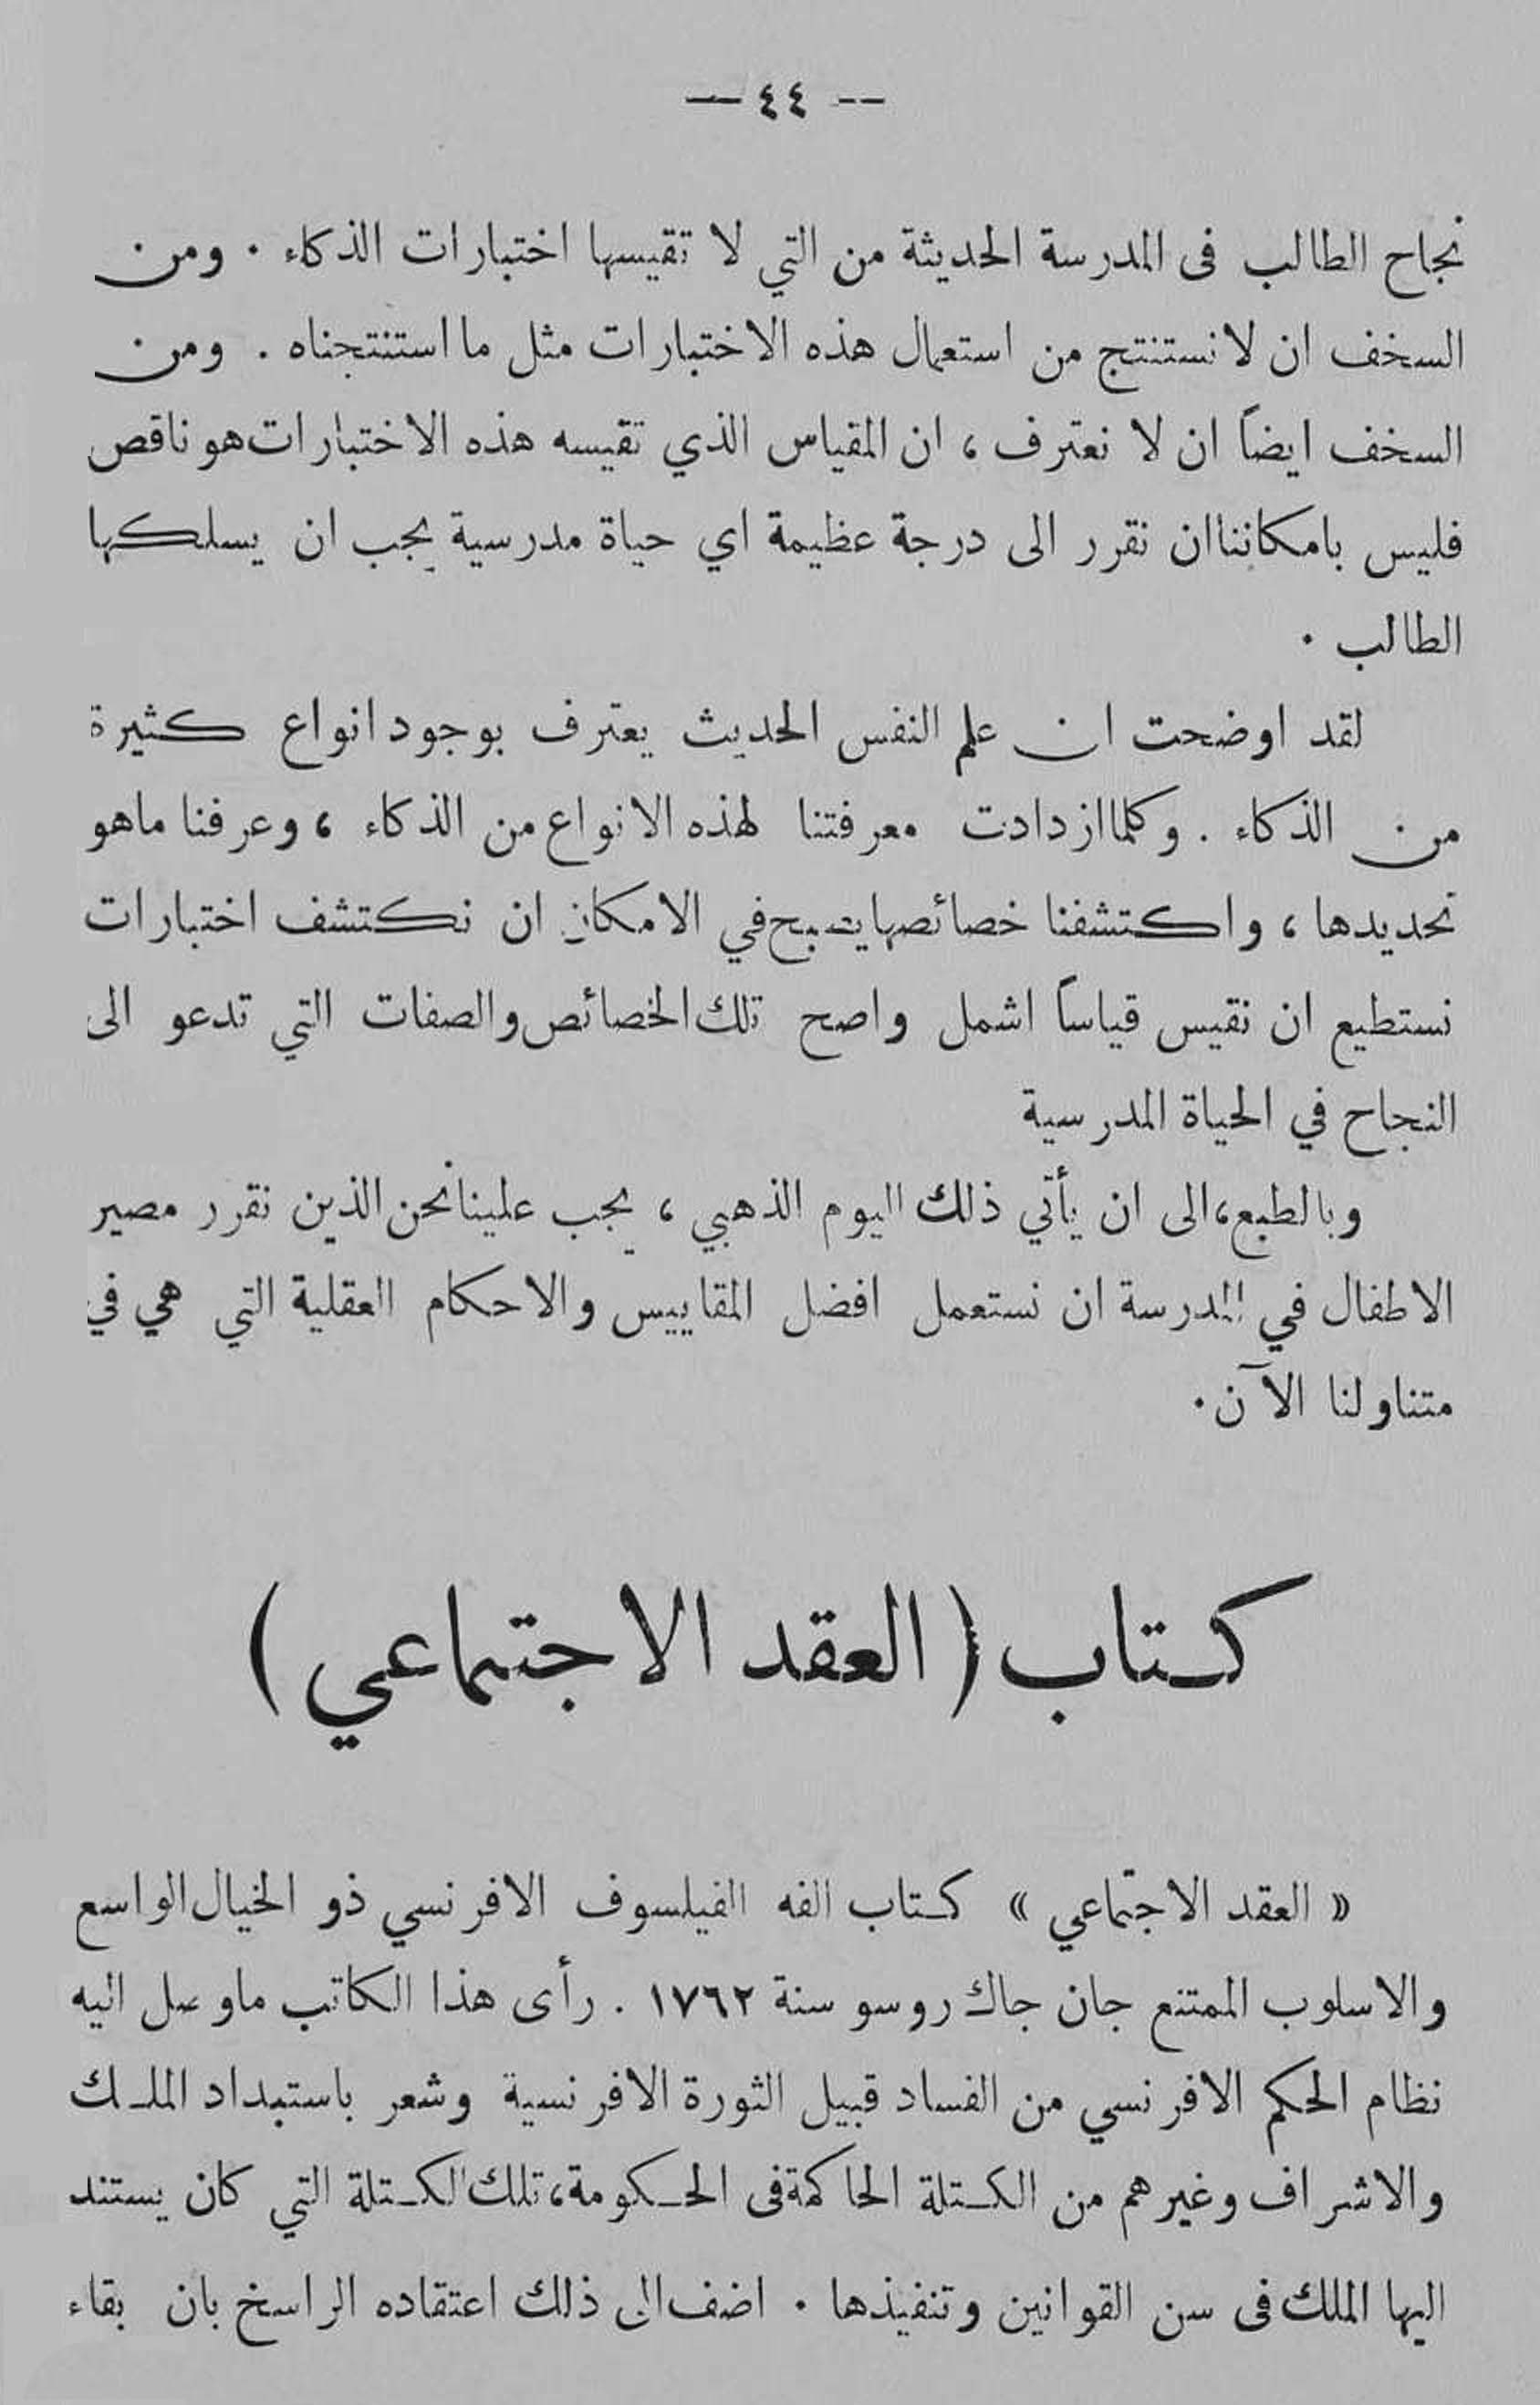 -- ٤٤ —
نجاح الطالب فى المدرسة الحديثة من التي لا تقيسها اختبارات الذكاء . ومن
السخف ان لا نستنتج من استعمال هذه الاختبارات مثل ما استنتجناه . ومن
السخف ايضاً ان لا نعترف ، ان المقياس الذي تقيسه هذه الاختبارات هو ناقص
فليس بامكاننا ان نقرر الى درجة عظيمة اي حياة مدرسية يجب ان يسلكها
الطالب .
لقد اوضحت ان علم النفس الحديث يعترف بوجود انواع كثيرة
من الذكاء . وكلما ازدادت معرفتنا لهذه الانواع من الذكاء ، وعرفنا ماهو
تحديدها ، واكتشفنا خصائصها يصبح في الامكان ان نكتشف اختبارات
نستطيع ان نقيس قياساً اشمل واصح تلك الخصائص والصفات التي تدعو الى
النجاح في الحياة المدرسية
وبالطبع ، الى ان يأتي ذلك اليوم الذهبي ، يجب علينا نحن الذين نقرر مصير
الاطفال في المدرسة ان نستعمل افضل المقاييس والاحكام العقلية التي هي في
متناولنا الآن .
كتاب ( العقد الاجتماعي )
« العقد الاجتماعي » كتاب الفه الفيلسوف الافرنسي ذو الخيال الواسع
والاسلوب الممتنع جان جاك روسو سنة ١٧٦٢ . رأى هذا الكاتب ماوصل اليه
نظام الحكم الافرنسي من الفساد قبيل الثورة الافرنسية وشعر باستبداد الملك
والاشراف وغيرهم من الكتلة الحاكمة فى الحكومة ، تلك الكتلة التي كان يستند
اليها الملك فى سن القوانين وتنفيذها . اضف الى ذلك اعتقاده الراسخ بان بقاء